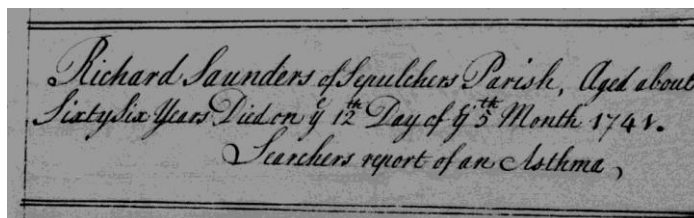 Richard Saunders of Sepulchers Parish, Aged about
Sixty Six Years Died on yͤ 12th Day of yͤ 5th Month 1741.
Searchers report of an Asthma,